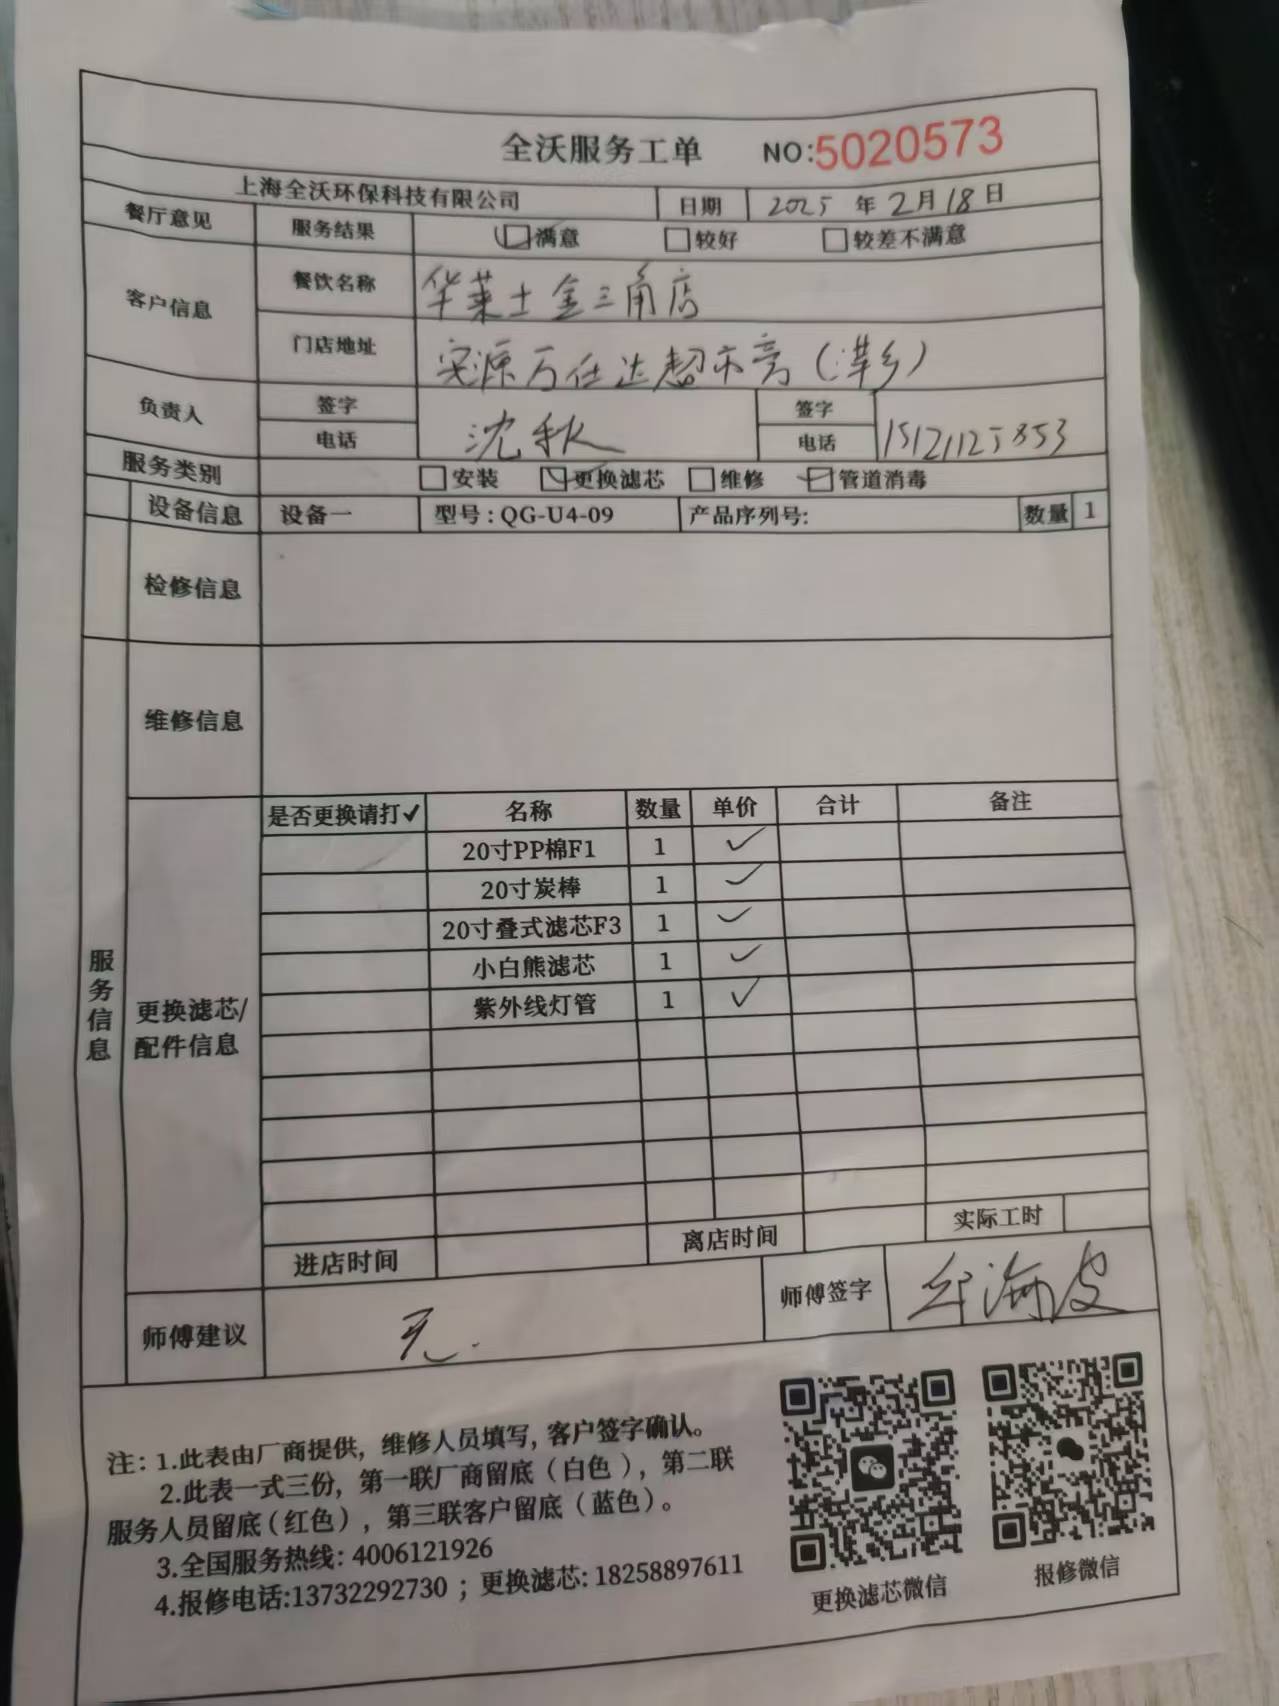 全沃服务工单 NO:5020573
上海全沃环保科技有限公司 日期 2025年2月18日
餐厅意见 服务结果 满意 较好 较差不满意
客户信息 餐饮名称 华莱士金三角店
门店地址 安源万仕达超市旁(萍乡)
负责人 签字 沈秋 签字
电话 电话 15121125853
服务类别 安装 更换滤芯 维修 管道消毒
设备信息 设备一 型号:QG-U4-09 产品序列号: 数量 1
检修信息
维修信息
服务信息
更换滤芯/
配件信息
是否更换请打✓ 名称 数量 单价 合计 备注
20寸PP棉F1 1 ✓
20寸炭棒 1 ✓
20寸叠式滤芯F3 1 ✓
小白熊滤芯 1 ✓
紫外线灯管 1 ✓
进店时间 离店时间 实际工时
师傅建议 无. 师傅签字
注:1.此表由厂商提供,维修人员填写,客户签字确认。
2.此表一式三份,第一联厂商留底(白色),第二联
服务人员留底(红色),第三联客户留底(蓝色)。
3.全国服务热线:4006121926
4.报修电话:13732292730;更换滤芯:18258897611
更换滤芯微信 报修微信